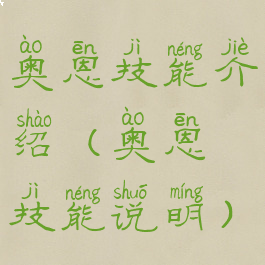 ào ēn jì néng jiè
奥恩技能介
shào ào ēn
绍（奥恩
jì néng shuō míng
技能说明）